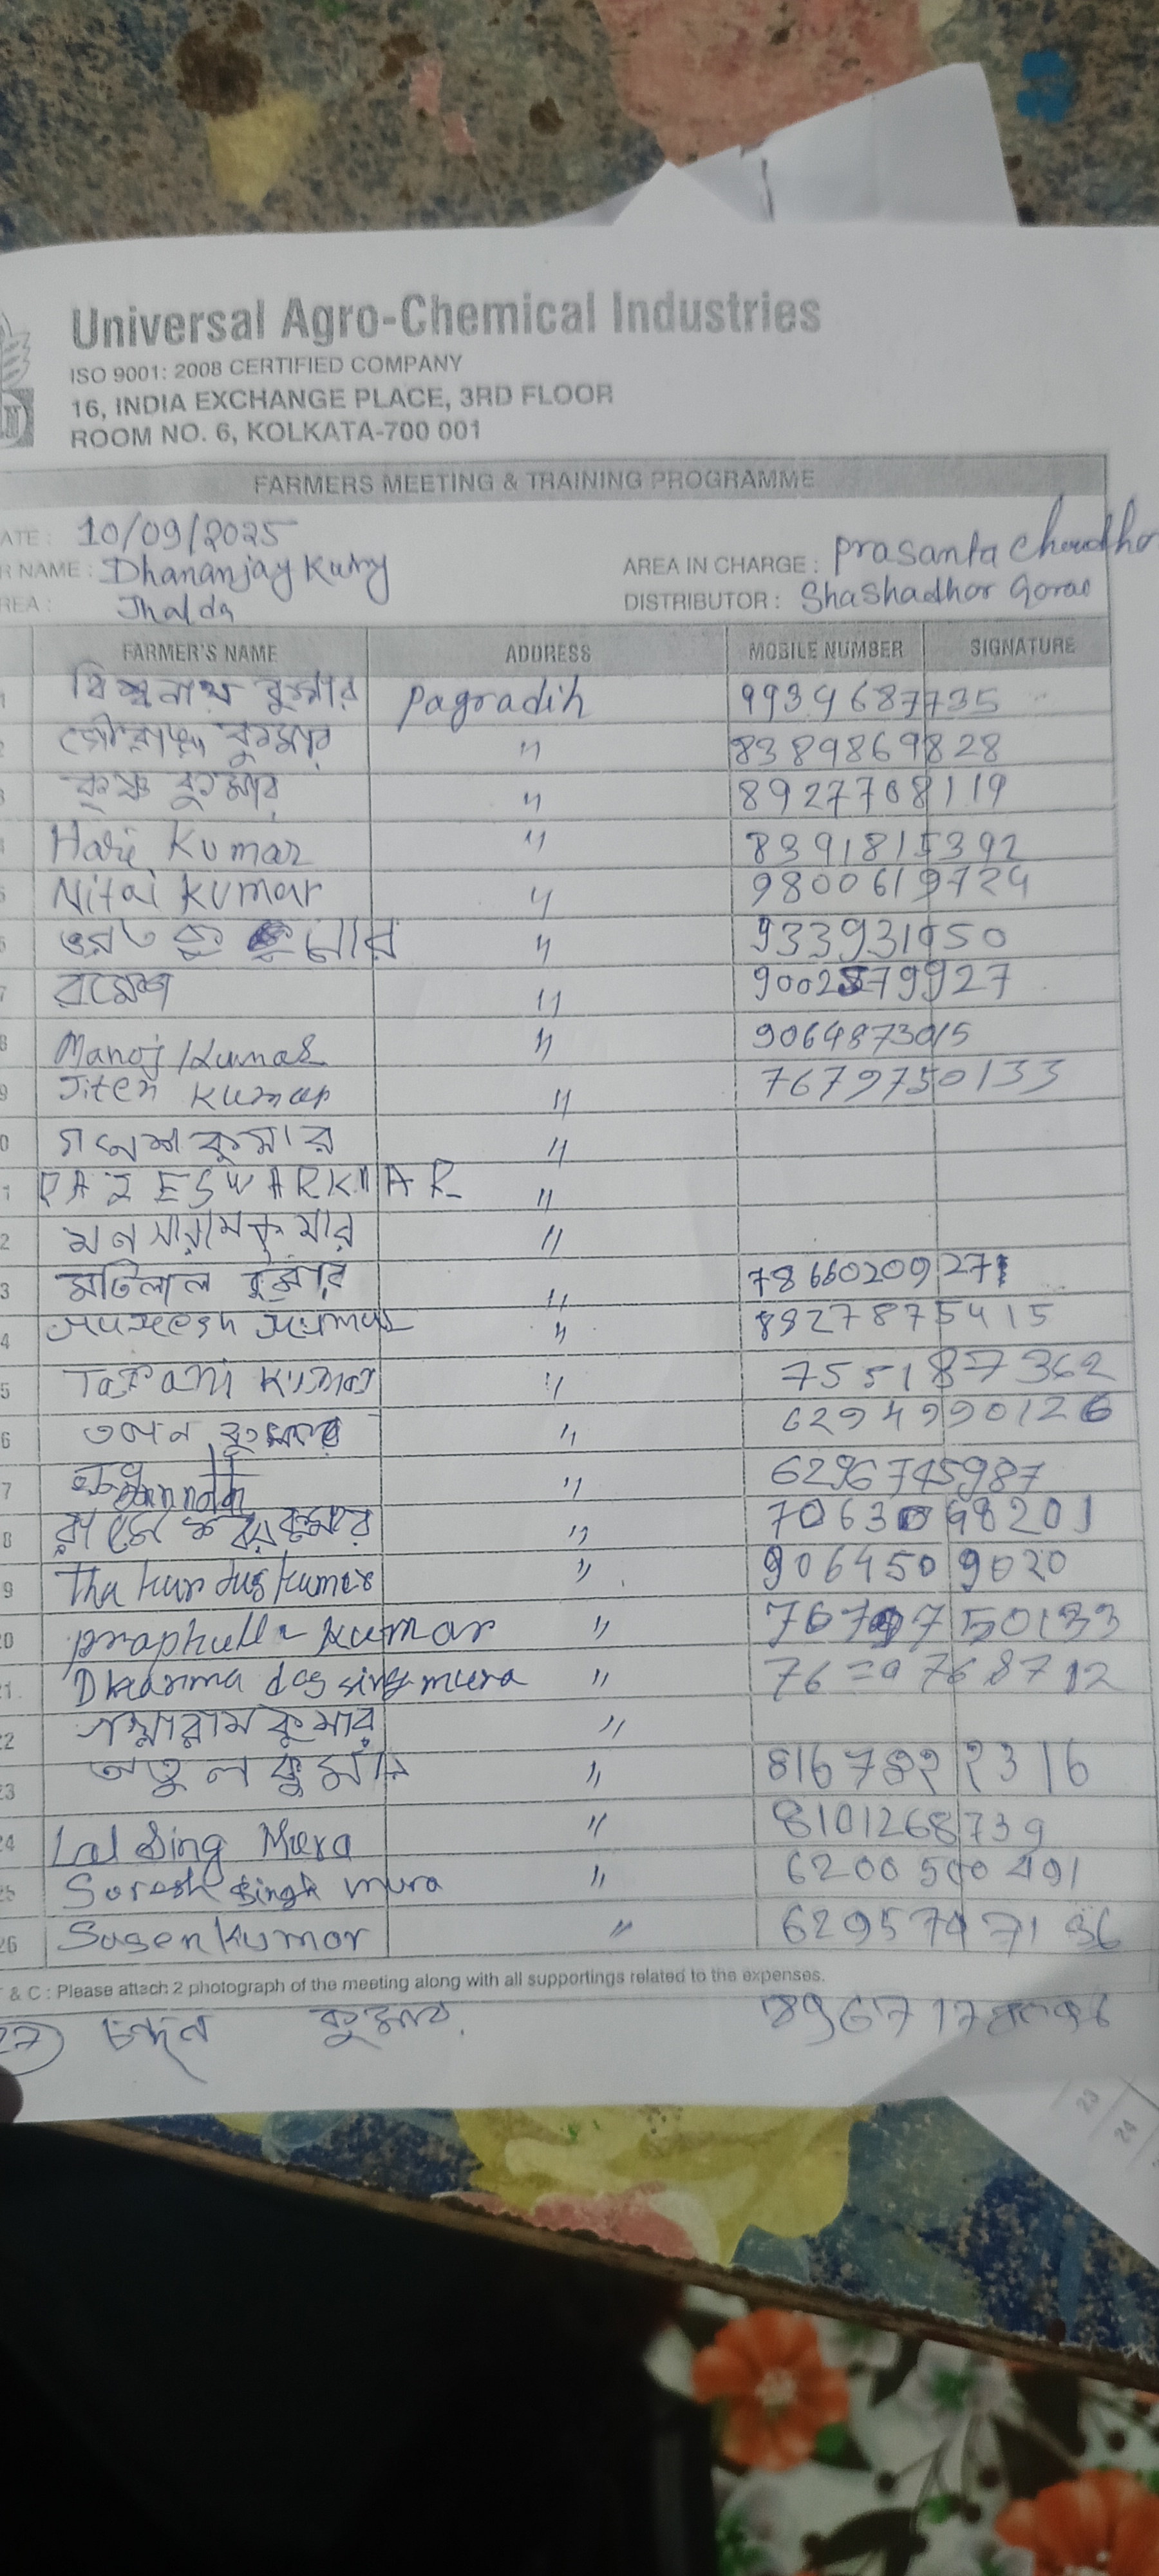 Universal Agro-Chemical Industries
ISO 9001: 2008 CERTIFIED COMPANY
16, INDIA EXCHANGE PLACE, 3RD FLOOR
ROOM NO. 6, KOLKATA-700 001
FARMERS MEETING & TRAINING PROGRAMME
ATE : 10/09/2025
R NAME : Dhananjay AREA IN CHARGE : Prasanta Choudho
REA : Jhalda DISTRIBUTOR : Shashadhor Gorai
FARMER'S NAME ADDRESS MOBILE NUMBER SIGNATURE
1 বিশ্বনাথ কুমার Pagradih 9934687735
2 কুমার " 8389869828
3 কৃষ্ণ কুমার " 8927708119
4 Hari Kumar " 8391815392
5 Nitai Kumar " 9800619724
6 " 933931950
7 রমেশ "
8 Manoj Kumar " 9064873015
9 Jiten Kumar " 7679750133
0 গনেশ কুমার "
1 "
2 মনসারাম কুমার "
3 মতিলাল কুমার "
4 " 8927875415
5 Tapan Kumar " 7551877362
6 তপন কুমার " 6294990126
7 " 6296745987
8 "
9 Thakurdas Kumar " 9064509020
20 praphulla kumar "
21. Dharma das sing mura "
22 গয়ারাম কুমার "
23 অতুল কুমার "
24 Lal Sing Mura " 8101268739
25 Suresh Singh mura " 6200500491
26 Susen Kumar "
& C : Please attach 2 photograph of the meeting along with all supportings related to the expenses.
27 চন্দন কুমার
23
24